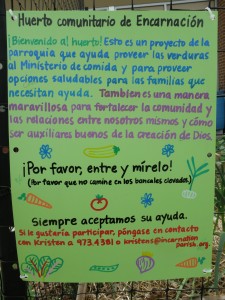 Huerto comunitario de Encarnación
¡Bienvenido al huerto! Esto es un proyecto de la
parroquia que ayuda, proveer las verduras
al Ministerio de comida y para proveer
opciones saludables para las familias que
necesitan ayuda. También es una manera
maravillosa para fortalecer la comunidad y
las relaciones entre nosotros mismos y cómo
ser auxiliares buenos de la creación de Dios.
¡Por favor, entre y mírelo!
(Por favor que no camine en los bancales elevados.)
Siempre aceptamos su ayuda.
Si le gustería participar, póngase en contacto
con Kristen a 973.4381 o kristens@incarnation
parish.org.